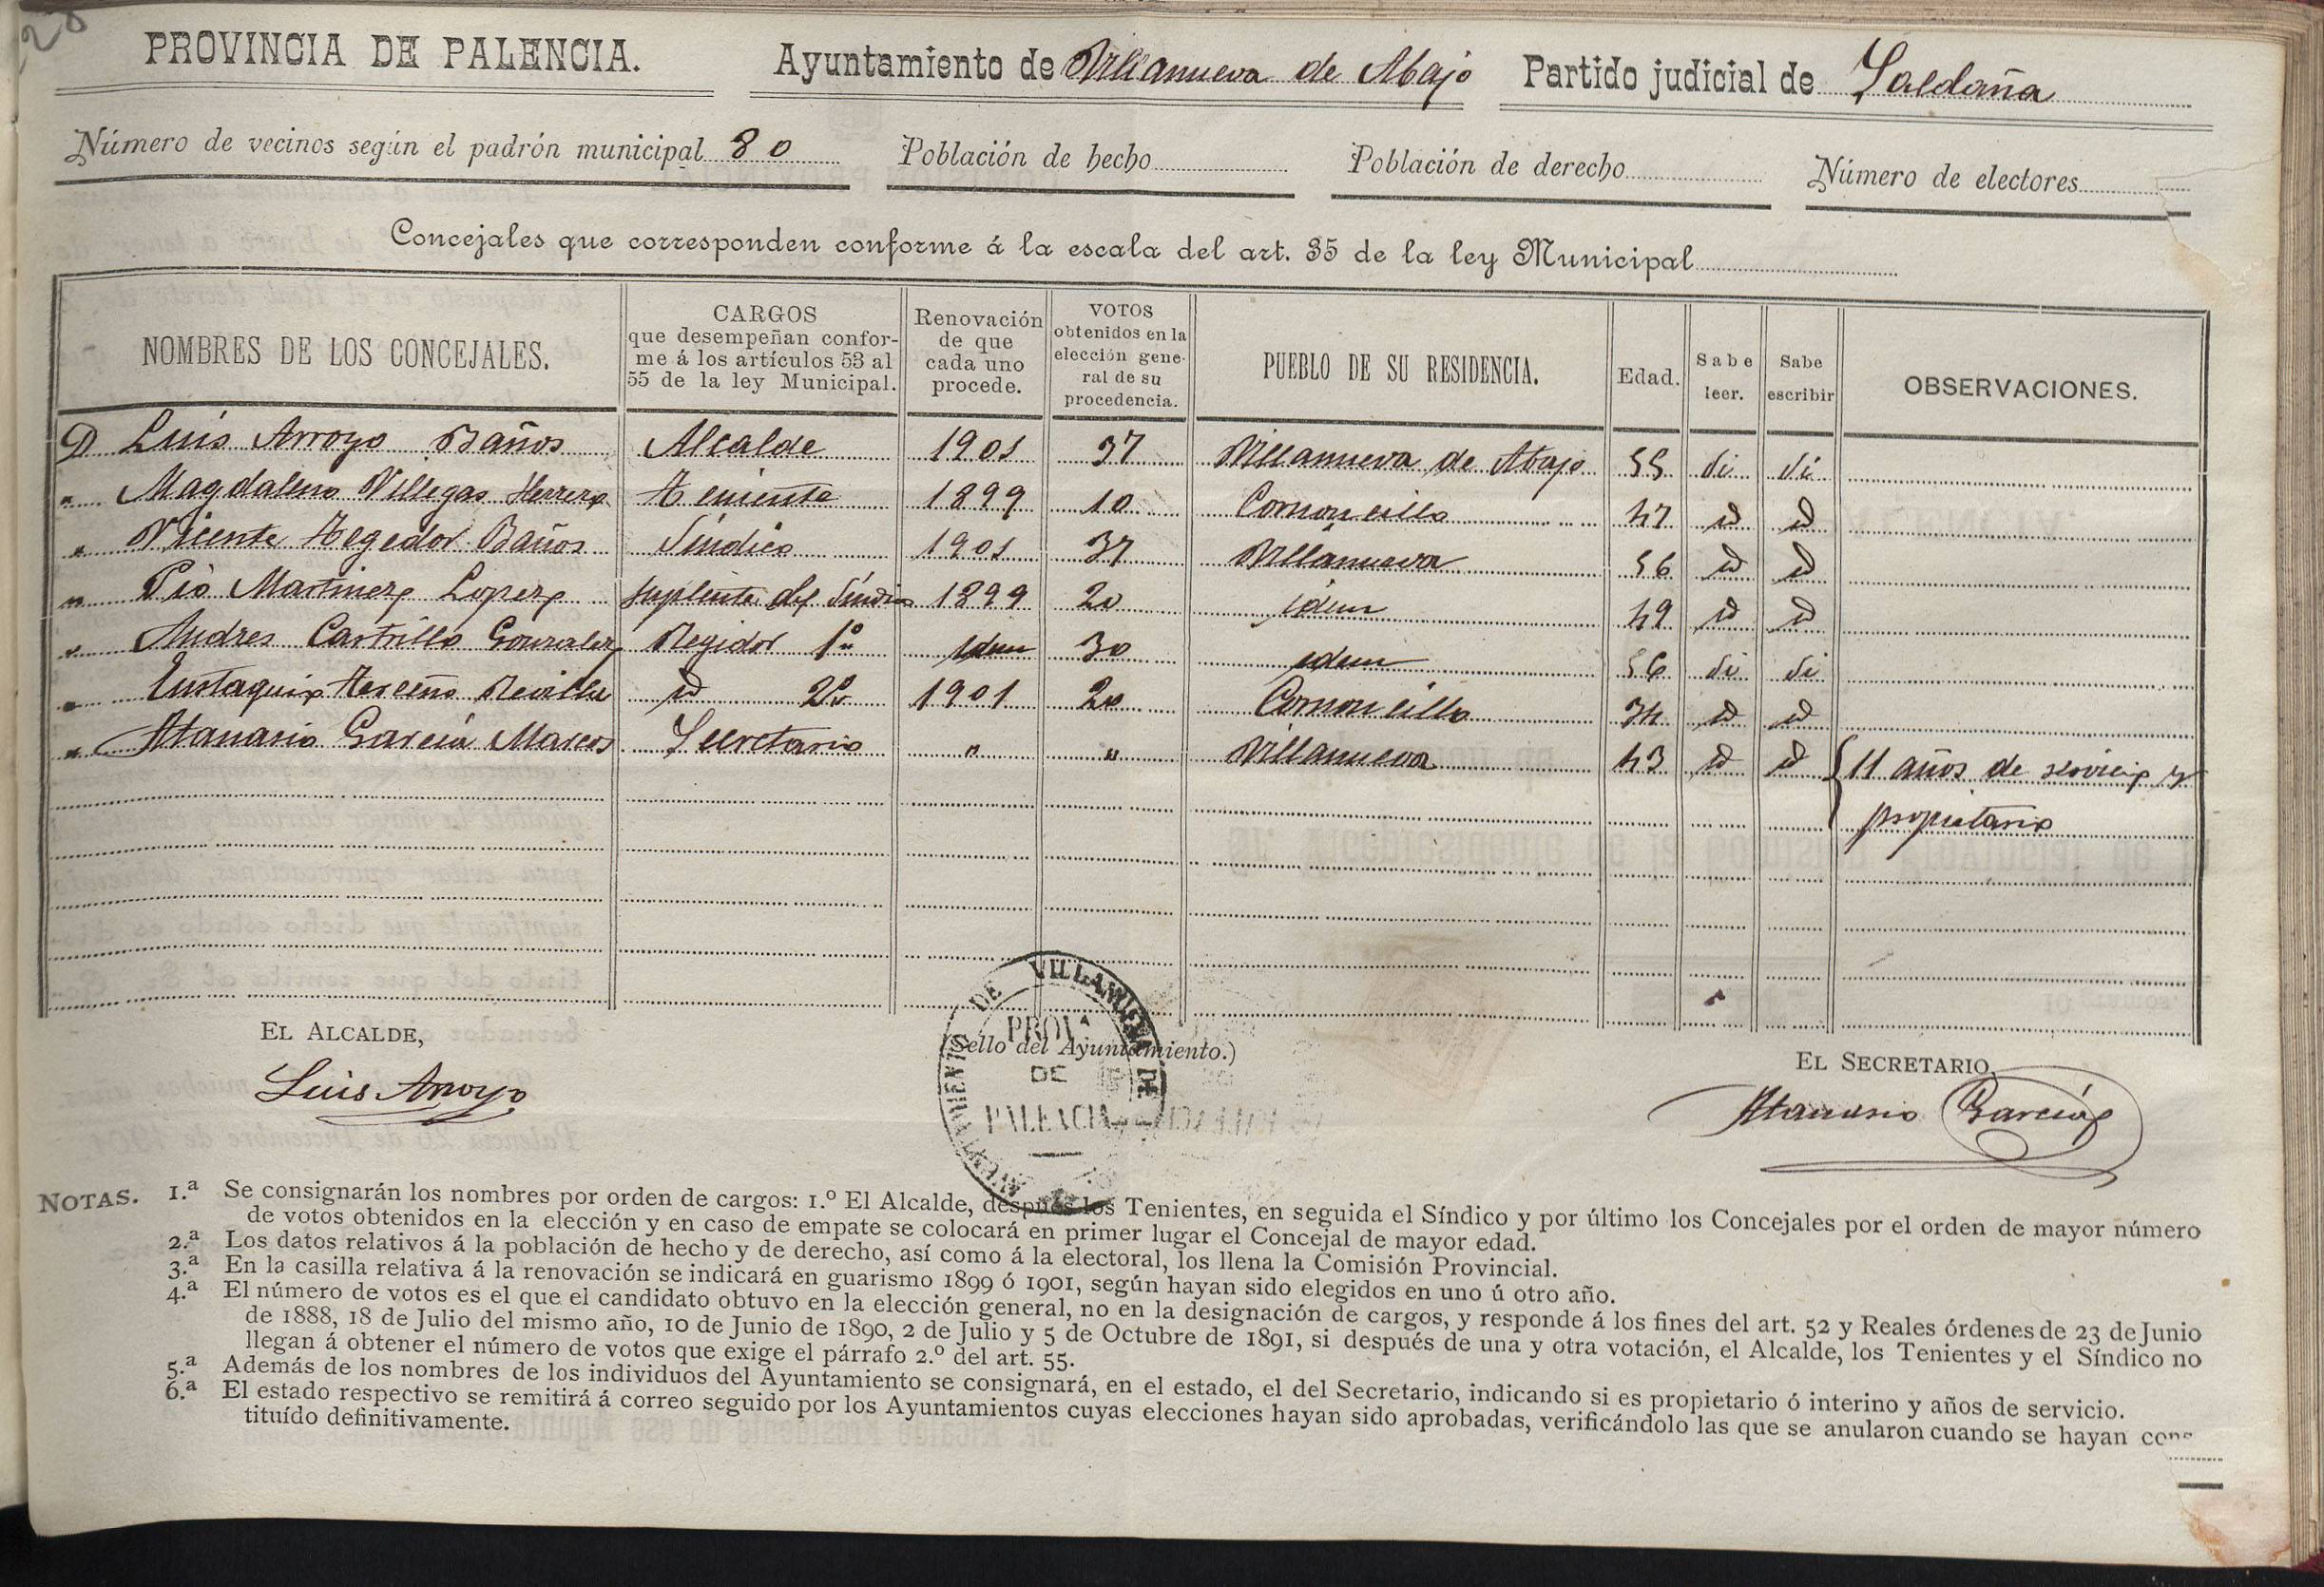 28
PROVINCIA DE PALENCIA. Ayuntamiento de Villanueva de Abajo Partido judicial de Saldaña
Número de vecinos según el padrón municipal 80 Población de hecho Población de derecho Número de electores
Concejales que corresponden conforme á la escala del art. 35 de la ley Municipal
NOMBRES DE LOS CONCEJALES. CARGOS que desempeñan conforme á los artículos 53 al 55 de la ley Municipal. Renovación de que cada uno procede. VOTOS obtenidos en la elección general de su procedencia. PUEBLO DE SU RESIDENCIA. Edad. Sabe leer. Sabe escribir OBSERVACIONES.
D Luis Arroyo Baños Alcalde 1901 37 Villanueva de Abajo 55 si si
" Magdaleno Villegas Herrero Teniente 1899 10 Cornoncillo 47 id id
" Vicente Tegedor Baños Síndico 1901 37 Villanueva 56 id id
" Pio Martinez Lopez suplente del Síndico 1899 20 idem 49 id id
" Andres Castrillo Gonzalez Regidor 1º idem 30 idem 56 si si
" Eustaquio Terceño Revilla id 2º 1901 20 Cornoncillo 34 id id
" Atanasio García Marcos Secretario " " Villanueva 43 id id 11 años de servicio y
propietario
EL ALCALDE,
Luis Arroyo
(Sello del Ayuntamiento.)
AYUNTAMIENTO DE
PROVª
DE
PALENCIA
EL SECRETARIO,
Atanasio García
NOTAS. 1.ª Se consignarán los nombres por orden de cargos: 1.º El Alcalde, después los Tenientes, en seguida el Síndico y por último los Concejales por el orden de mayor número
de votos obtenidos en la elección y en caso de empate se colocará en primer lugar el Concejal de mayor edad.
2.ª Los datos relativos á la población de hecho y de derecho, así como á la electoral, los llena la Comisión Provincial.
3.ª En la casilla relativa á la renovación se indicará en guarismo 1899 ó 1901, según hayan sido elegidos en uno ú otro año.
4.ª El número de votos es el que el candidato obtuvo en la elección general, no en la designación de cargos, y responde á los fines del art. 52 y Reales órdenes de 23 de Junio
de 1888, 18 de Julio del mismo año, 10 de Junio de 1890, 2 de Julio y 5 de Octubre de 1891, si después de una y otra votación, el Alcalde, los Tenientes y el Síndico no
llegan á obtener el número de votos que exige el párrafo 2.º del art. 55.
5.ª Además de los nombres de los individuos del Ayuntamiento se consignará, en el estado, el del Secretario, indicando si es propietario ó interino y años de servicio.
6.ª El estado respectivo se remitirá á correo seguido por los Ayuntamientos cuyas elecciones hayan sido aprobadas, verificándolo las que se anularon cuando se hayan cons
tituído definitivamente.